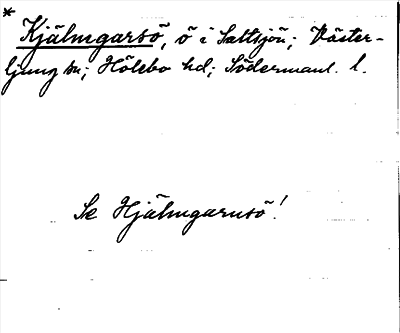 *
Kjälmgarsö, ö i Saltsjön; Väster-
ljung sn; Hölebo hd; Södermanl. l.
Se Hjälmgarnsö!